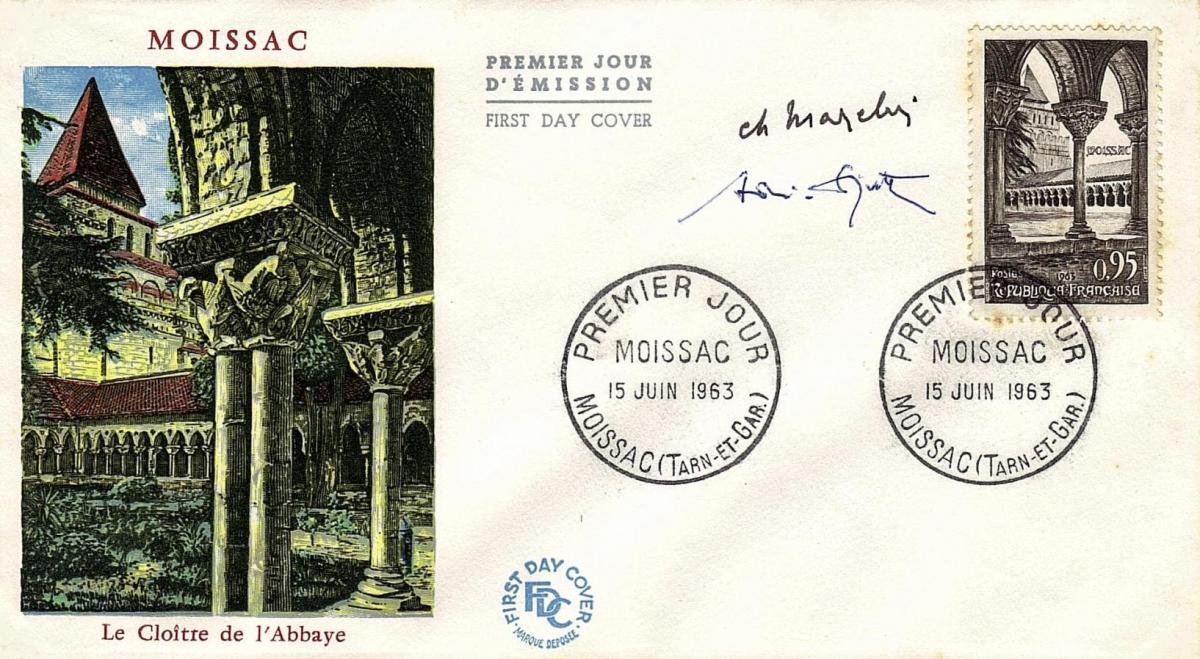 MOISSAC
PREMIER JOUR
D'ÉMISSION
FIRST DAY COVER
ch Mazelin
MOISSAC
Postes 1963 0,95
REPUBLIQUE·FRANÇAISE
PREMIER JOUR
MOISSAC
15 JUIN 1963
MOISSAC (TARN-ET-GAR.)
PREMIER JOUR
MOISSAC
15 JUIN 1963
MOISSAC (TARN-ET-GAR.)
FIRST DAY COVER
FDC
MARQUE DEPOSÉE
Le Cloître de l'Abbaye